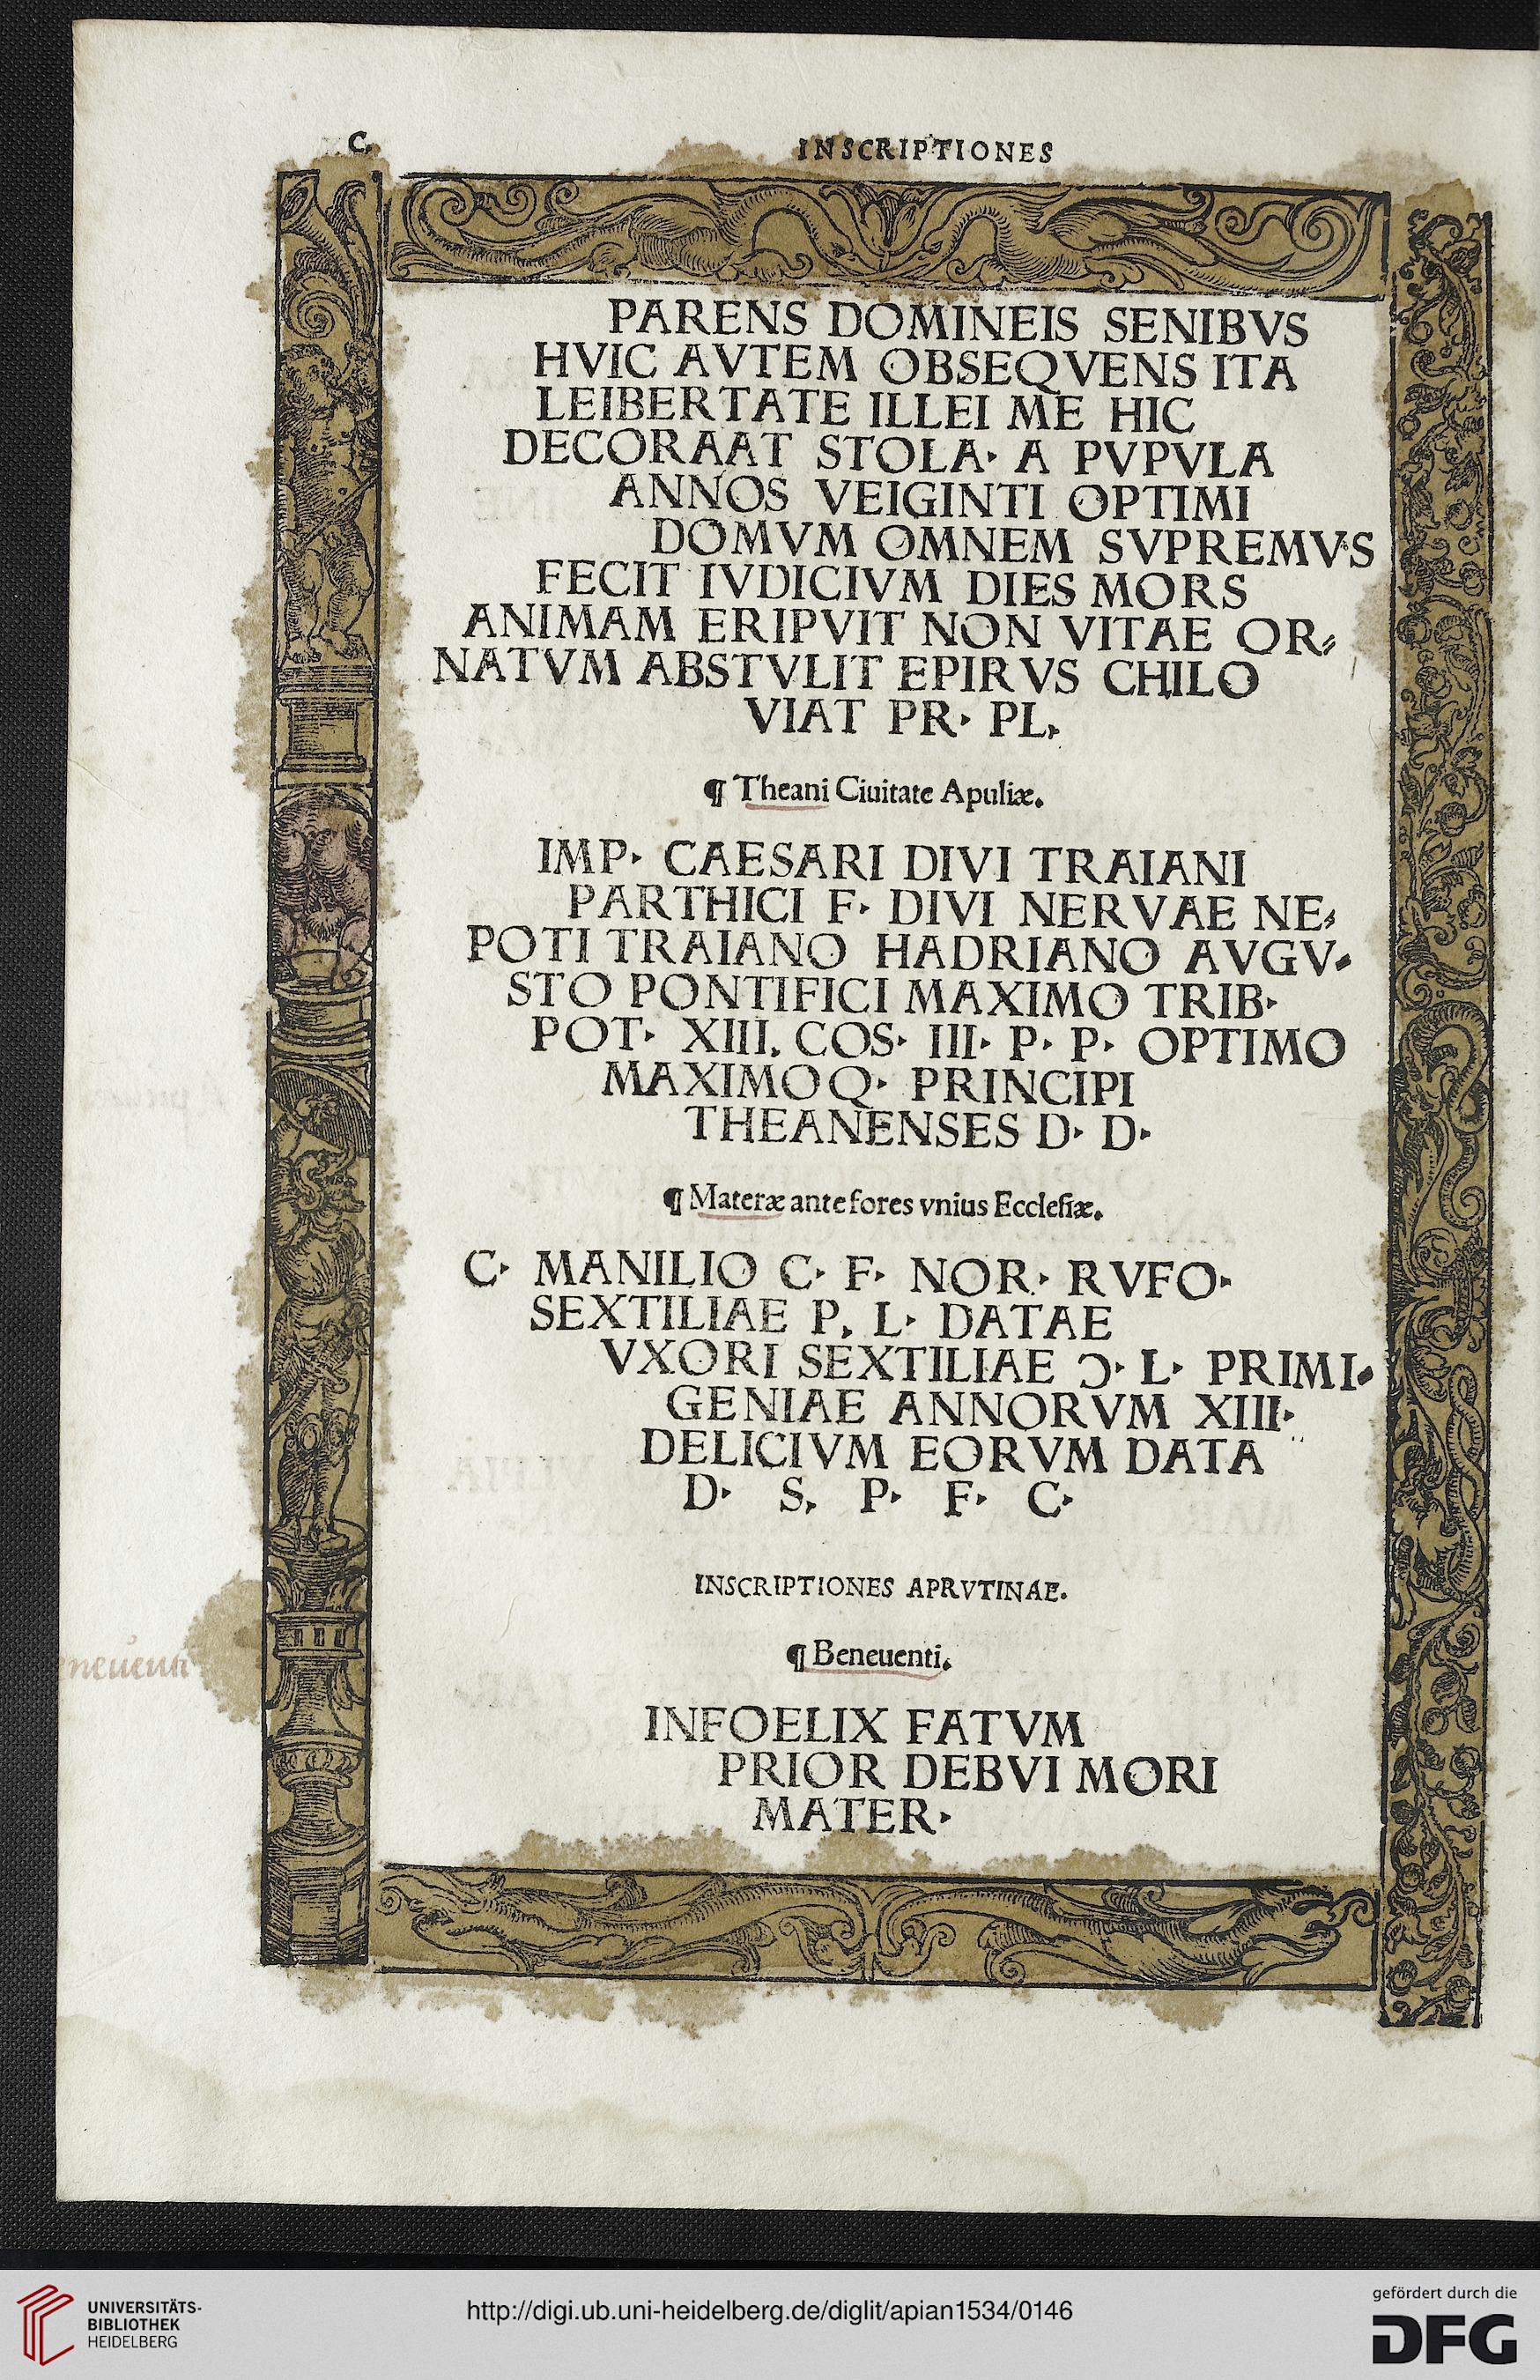 C.
INSCRIPTIONES
PARENS DOMINEIS SENIBVS
HVIC AVTEM OBSEQVENS ITA
LEIBERTATE ILLEI ME HIC
DECORAAT STOLA· A PVPVLA
ANNOS VEIGINTI OPTIMI
DOMVM OMNEM SVPREMVS
FECIT IVDICIVM DIES MORS
ANIMAM ERIPVIT NON VITAE OR⸗
NATVM ABSTVLIT EPIRVS CHILO
VIAT PR· PL·
¶ Theani Ciuitate Apuliæ.
IMP· CAESARI DIVI TRAIANI
PARTHICI F· DIVI NERVAE NE⸗
POTI TRAIANO HADRIANO AVGV⸗
STO PONTIFICI MAXIMO TRIB·
POT· XIII. COS· III· P· P· OPTIMO
MAXIMOQ· PRINCIPI
THEANENSES D· D·
¶ Materæ ante fores vnius Eccleſiæ.
C· MANILIO C· F· NOR· RVFO·
SEXTILIAE P. L· DATAE
VXORI SEXTILIAE Ɔ· L· PRIMI⸗
GENIAE ANNORVM XIII·
DELICIVM EORVM DATA
D· S· P· F· C·
INSCRIPTIONES APRVTINAE.
¶ Beneuenti.
neuenti
INFOELIX FATVM
PRIOR DEBVI MORI
MATER·
UNIVERSITÄTS-
BIBLIOTHEK
HEIDELBERG
http://digi.ub.uni-heidelberg.de/diglit/apian1534/0146
gefördert durch die
DFG